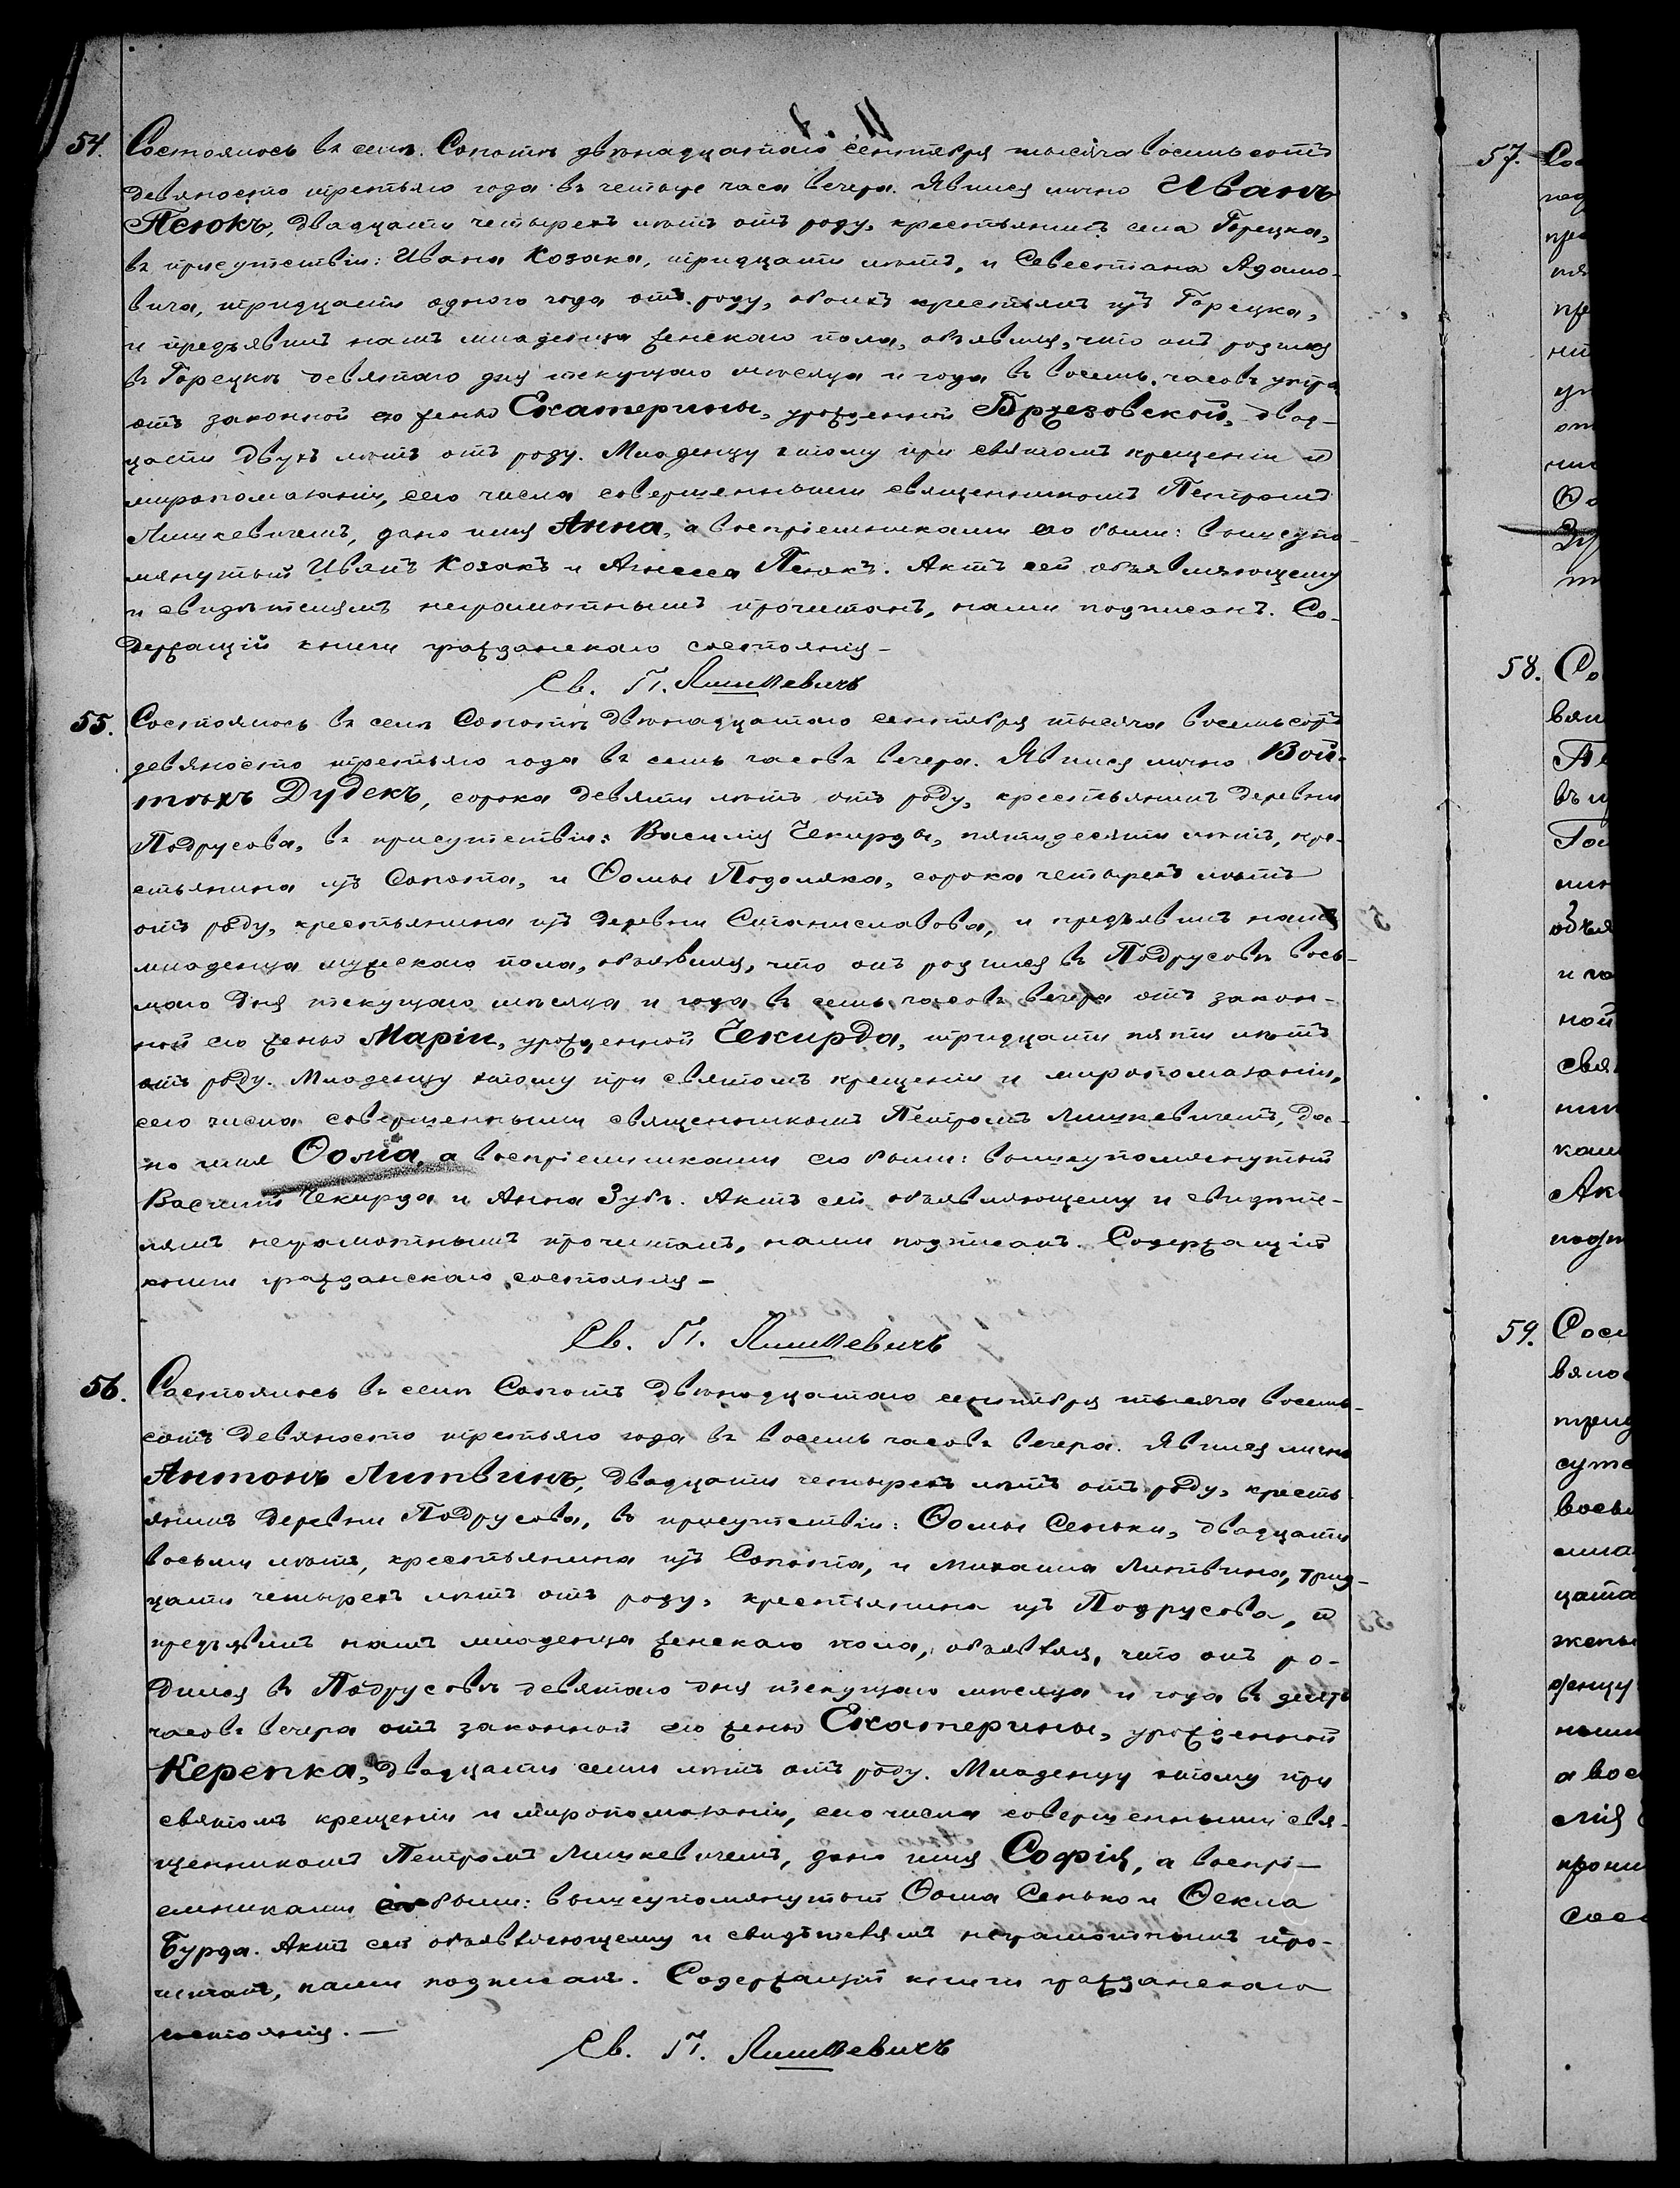 54. Состоялось въ селѣ Сопотѣ двѣнадцатаго сентября тысяча восемьсотъ
девяносто третьяго года въ четыре часа вечера. Явился лично Иванъ
Псюкъ, двадцати четырехъ лѣтъ отъ роду, крестьянинъ села Горецка,
въ присутствіи: Ивана Козака, тридцати лѣтъ, и Севестіана Адамо-
вича, тридцати одного года отъ роду, обоихъ крестьянъ изъ Горецка,
и предъявилъ намъ младенца женскаго пола, объявляя, что онъ родился
въ Горецкѣ девятаго дня текущаго мѣсяца и года въ восемь часовъ утра
отъ законной его жены Екатерины, урожденной Бржезовской, двад-
цати двухъ лѣтъ отъ роду. Младенцу этому при святомъ крещеніи и
миропомазаніи, сего числа совершенными священникомъ Петромъ
Лишкевичемъ, дано имя Анна, а воспріемниками его были: вышеупо-
мянутый Иванъ Козакъ и Агнеса Псюкъ. Актъ сей объявляющему
и свидѣтелямъ неграмотнымъ прочитанъ, нами подписанъ. Со-
держащій книги гражданскаго состоянія –
Св. П. Лишкевичъ
55. Состоялось въ селѣ Сопотѣ двѣнадцатаго сентября тысяча восемьсотъ
девяносто третьяго года въ семь часовъ вечера. Явился лично Вой-
тѣхъ Дудекъ, сорока девяти лѣтъ отъ роду, крестьянинъ деревни
Подрусова, въ присутствіи: Василія Чекирды, пятидесяти лѣтъ, кре-
стьянина изъ Сопота, и Ѳомы Подоляка, сорока четырехъ лѣтъ
отъ роду, крестьянина изъ деревни Станиславова, и предъявилъ намъ
младенца мужескаго пола, объявляя, что онъ родился въ Подрусовѣ вось-
маго дня текущаго мѣсяца и года въ семь часовъ вечера отъ закон-
ной его жены Маріи, урожденной Чекирда, тридцати пяти лѣтъ
отъ роду. Младенцу этому при святомъ крещеніи и миропомазаніи,
сего числа совершенными священникомъ Петромъ Лишкевичемъ, да-
но имя Ѳома, а воспріемниками его были: вышеупомянутый
Василій Чекирда и Анна Зубъ. Актъ сей объявляющему и свидѣте-
лямъ неграмотнымъ прочитанъ, нами подписанъ. Содержащій
книги гражданскаго состоянія –
Св. П. Лишкевичъ
56. Состоялось въ селѣ Сопотѣ двѣнадцатаго сентября тысяча восемь-
сотъ девяносто третьяго года въ восемь часовъ вечера. Явился лично
Антонъ Литвинъ, двадцати четырехъ лѣтъ отъ роду, кресть-
янинъ деревни Подрусова, въ присутствіи: Ѳомы Сеньки, двадцати
восьми лѣтъ, крестьянина изъ Сопота, и Михаила Литвина, трид-
цати четырехъ лѣтъ отъ роду, крестьянина изъ Подрусова, и
предъявилъ намъ младенца женскаго пола, объявляя, что онъ ро-
дился въ Подрусовѣ девятаго дня текущаго мѣсяца и года въ десять
часовъ вечера отъ законной его жены Екатерины, урожденной
Керепка, двадцати семи лѣтъ отъ роду. Младенцу этому при
святомъ крещеніи и миропомазаніи, сего числа совершенными свя-
щенникомъ Петромъ Лишкевичемъ, дано имя Софія, а воспрі-
емниками его были: вышеупомянутый Ѳома Сенько и Ѳекла
Бурда. Актъ сей объявляющему и свидѣтелямъ неграмотнымъ про-
читанъ, нами подписанъ. Содержащій книги гражданскаго
состоянія. –
Св. П. Лишкевичъ
57.
58.
59.